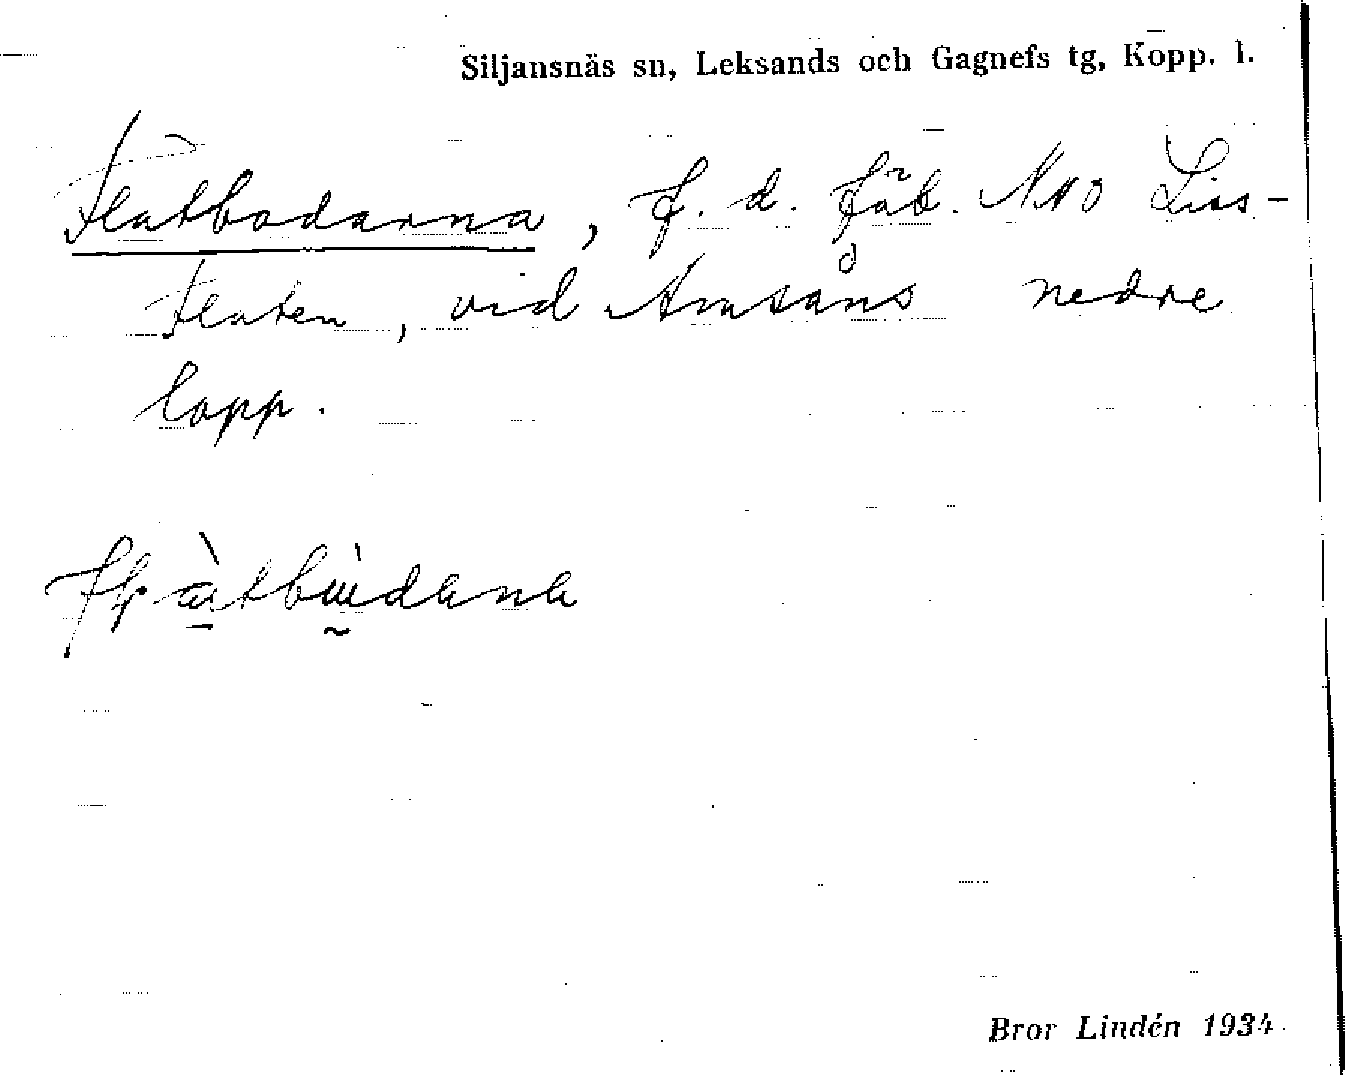 Siljansnäs sn, Leksands och Gagnefs tg, Kopp. l.
Flatbodarna, f. d. fäb. NNO Liss-
flaten, vid Amsåns nedre
lopp.
Bror Lindén 1934